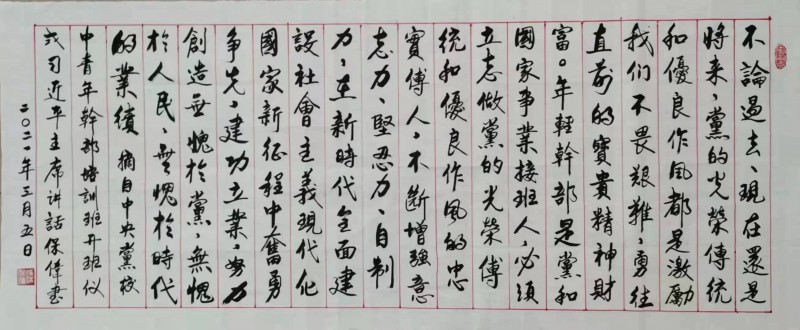 不論過去、現在還是
將來、黨的光榮傳統
和優良作風都是激勵
我们不畏艱難、勇往
直前的寶貴精神財
富。年輕幹部是黨和
國家事業接班人、必須
立志做黨的光榮傳
統和優良作風的忠
實傳人、不斷增強意
志力、堅忍力、自制
力、在新時代全面建
設社會主義現代化
國家新征程中奮勇
争先、建功立業、努力
創造無愧於黨、無愧
於人民、無愧於時代
的業績 摘自中央黨校
中青年幹部培訓班开班仪
式习近平主席讲話保偉书
二〇二一年三月五日